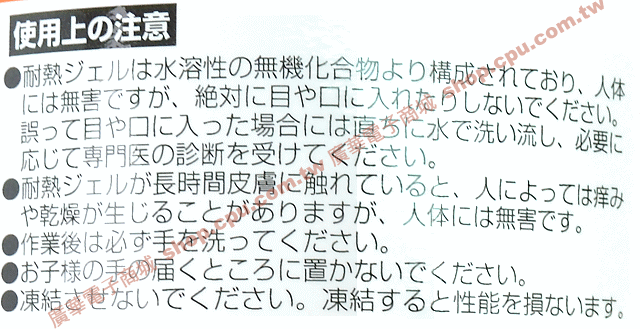 使用上の注意
●耐熱ジェルは水溶性の無機化合物より構成されており、人体
には無害ですが、絶対に目や口に入れたりしないでください。
誤って目や口に入った場合には直ちに水で洗い流し、必要に
応じて専門医の診断を受けてください。
●耐熱ジェルが長時間皮膚に触れていると、人によっては痒み
や乾燥が生じることがありますが、人体には無害です。
●作業後は必ず手を洗ってください。
●お子様の手の届くところに置かないでください。
●凍結させないでください。凍結すると性能を損ないます。
廣華電子商城 shop.cpu.com.tw
廣華電子商城 shop.cpu.com.tw